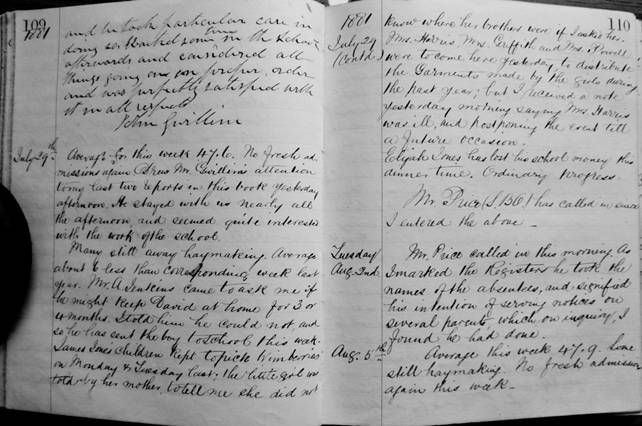 109
1881
and he took particular care in
doing so. Waited some time in the School
afterwards and considered all
things going on in proper order
and was perfectly satisfied with
it in all respects
John Gwillim
July 29th
Average for this week 47.6. No fresh ad-
missions again. Drew Mr. Gwillim's attention
to my last two reports in this book yesterday
afternoon. He stayed with us nearly all
the afternoon, and seemed quite interested
with the work of the school.
Many still away haymaking. Average
about 6 less than corresponding week last
year. Mr. A. Jenkins came to ask me if
he might keep David at home for 3 or
4 months. I told him he could not and
so he has sent the boy to school this week.
James Jones' children kept to pick Wimberries
on Monday & Tuesday last; the little girl was
told by her mother, to tell me she did not
110
1881
July 29
(Contd)
know where her brothers were if I asked her.
Mrs. Harris, Mrs. Griffith and Mrs. Powell
were to come here yesterday to distribute
the Garments made by the girls during
the past year; but I received a note
yesterday morning saying Mrs. Harris
was ill, and postponing the event till
a future occasion.
Elijah Jones has lost his school money this
dinner time. Ordinary progress.
Mr. Price (S.B.O) has called in since
I entered the above.
Tuesday
Aug. 2nd
Mr. Price called in this morning. As
I marked the Registers he took the
names of the absentees, and signified
his intention of serving notices on
several parents, which on inquiry, I
found he had done.
Aug. 5th
Average this week 47.9. Some
still haymaking. No fresh admission
again this week.